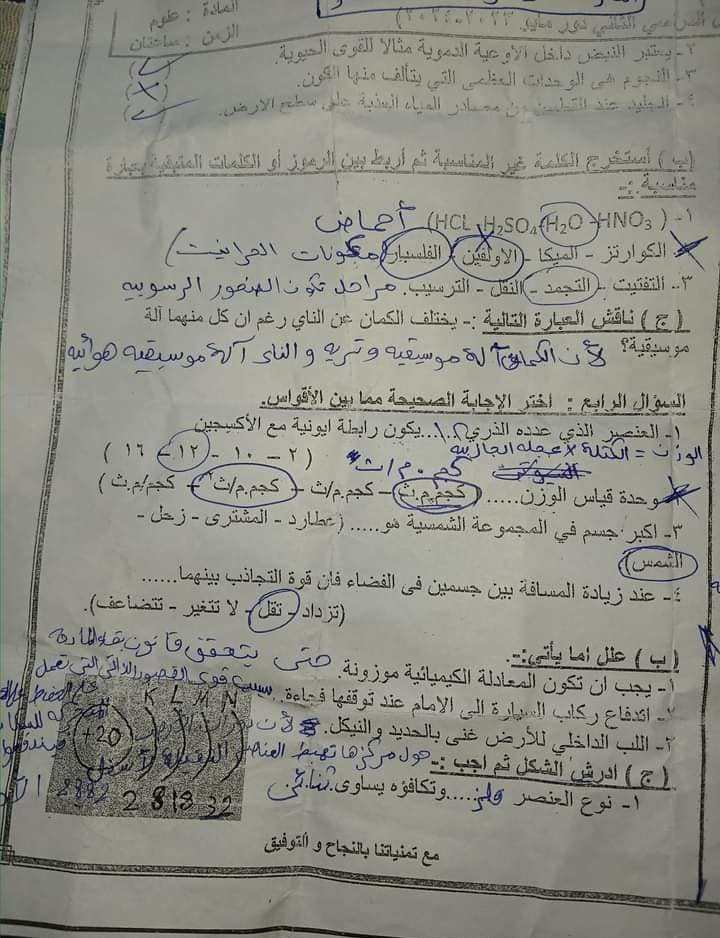 المادة : علوم
الدراسي الثاني دور مايو ٢٠٢٣-٢٠٢٤).
الزمن : ساعتان
٢- يعتبر النبض داخل الاوعية الدموية مثالا للقوى الحيوية.
٣- النجوم هى الوحدات العظمى التي يتألف منها الكون.
٤- الجليد عند القطبين من مصادر المياه العذبة على سطح الارض.
(ب) أستخرج الكلمة غير المناسبة ثم أربط بين الرموز أو الكلمات المتبقية بعبارة
مناسبة :-
١- ( HCL - H₂SO₄ - H₂O - HNO₃ ) أحماض
٢- الكوارتز - الميكا - الاولفين - الفلسبار (مكونات الجرانيت)
٣- التفتيت - التجمد - النقل - الترسيب. مراحل تكون الصخور الرسوبيه
( ج ) ناقش العبارة التالية :- يختلف الكمان عن الناي رغم ان كل منهما آلة
موسيقية؟ لأن الكمان آلة موسيقيه وتريه و الناى آلة موسيقيه هوائيه
السؤال الرابع : اختر الإجابة الصحيحة مما بين الأقواس.
١- العنصر الذي عدده الذري .....يكون رابطة ايونية مع الأكسجين
( ٢ - ١٠ - ١٢ - ١٦ )
الوزن = الكتلة × عجله الجاذبيه
كجم . م/ث²
٢- وحدة قياس الوزن...... ( كجم.م.ث - كجم.م/ث - كجم.م/ث² - كجم/م.ث )
٣- اكبر جسم في المجموعة الشمسية هو..... (عطارد - المشترى - زحل -
الشمس)
٤- عند زيادة المسافة بين جسمين فى الفضاء فان قوة التجاذب بينهما......
(تزداد - تقل - لا تتغير - تتضاعف).
( ب ) علل لما يأتي:-
١- يجب ان تكون المعادلة الكيميائية موزونة. حتى يتحقق قانون بقاء المادة
٢- اندفاع ركاب السيارة الى الامام عند توقفها فجاءة. بسبب قوى القصور الذاتي التى تعمل
٣- اللب الداخلي للأرض غنى بالحديد والنيكل. لأن
حول مركزها تهبط العناصر
( ج ) ادرش الشكل ثم اجب :-
١- نوع العنصر فلز....وتكافؤه يساوى. ثنائى
K L M N
+20
2 8 18 32
2 8 8 2
مع تمنياتنا بالنجاح و التوفيق